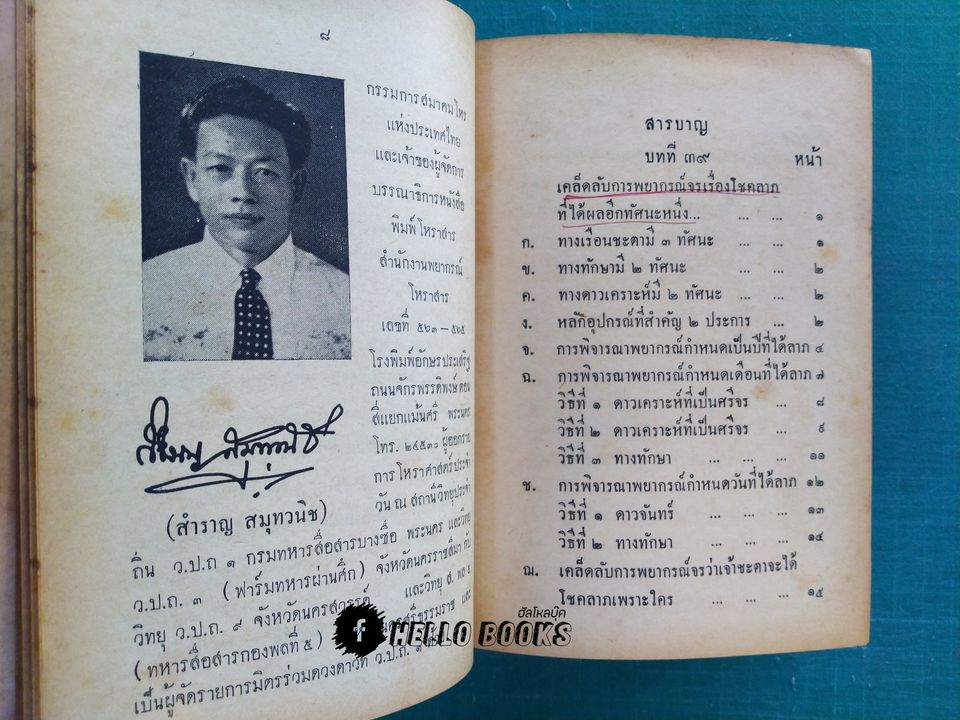 ๘
กรรมการสมาคมโหร
แห่งประเทศไทย
และเจ้าของผู้จัดการ
บรรณาธิการหนังสือ
พิมพ์โหราสาร
สำนักงานพยากรณ์
โหราสาร
เลขที่ ๕๖๓ – ๕๖๕
โรงพิมพ์อักษรประเสริฐ
ถนนจักรพรรดิพงษ์ ตอน
สี่แยกแม้นศรี พระนคร
โทร. ๒๔๕๓๐ ผู้ออกราย
การโหราศาสตร์ประจำ
วัน ณ สถานีวิทยุประจำ
สำราญ สมุทวนิช
(สำราญ สมุทวนิช)
ถิ่น ว.ป.ถ ๑ กรมทหารสื่อสารบางซื่อ พระนคร และวิทยุ
ว.ป.ถ. ๓ (ฟาร์มทหารผ่านศึก) จังหวัดนครราชสีมา กับ
วิทยุ ว.ป.ถ. ๙ จังหวัดนครสวรรค์ และวิทยุ ส. พล ๕
(ทหารสื่อสารกองพลที่ ๕) และ
เป็นผู้จัดรายการมิตรร่วมดวงดาวที่ ว.ป.ถ.
สารบาญ
บทที่ ๓๙ หน้า
เคล็ดลับการพยากรณ์จรเรื่องโชคลาภ
ที่ได้ผลอีกทัศนะหนึ่ง... ... ... ๑
ก. ทางเรือนชะตามี ๓ ทัศนะ ... ... ๑
ข. ทางทักษามี ๒ ทัศนะ ... ... ๒
ค. ทางดาวเคราะห์มี ๒ ทัศนะ ... ... ๒
ง. หลักอุปกรณ์ที่สำคัญ ๒ ประการ ... ๒
จ. การพิจารณาพยากรณ์กำหนดเป็นปีที่ได้ลาภ ๔
ฉ. การพิจารณาพยากรณ์กำหนดเดือนที่ได้ลาภ ๗
วิธีที่ ๑ ดาวเคราะห์ที่เป็นศรีจร ... ๘
วิธีที่ ๒ ดาวเคราะห์ที่เป็นศรีจร ... ๙
วิธีที่ ๓ ทางทักษา ... ... ... ๑๑
ช. การพิจารณาพยากรณ์กำหนดวันที่ได้ลาภ ๑๒
วิธีที่ ๑ ดาวจันทร์ ... ... ... ๑๓
วิธีที่ ๒ ทางทักษา ... ... ... ๑๔
ฌ. เคล็ดลับการพยากรณ์จรว่าเจ้าชะตาจะได้
โชคลาภเพราะใคร ... ... ... ๑๕
ฮัลโหลบุ๊ค
f HELLO BOOKS